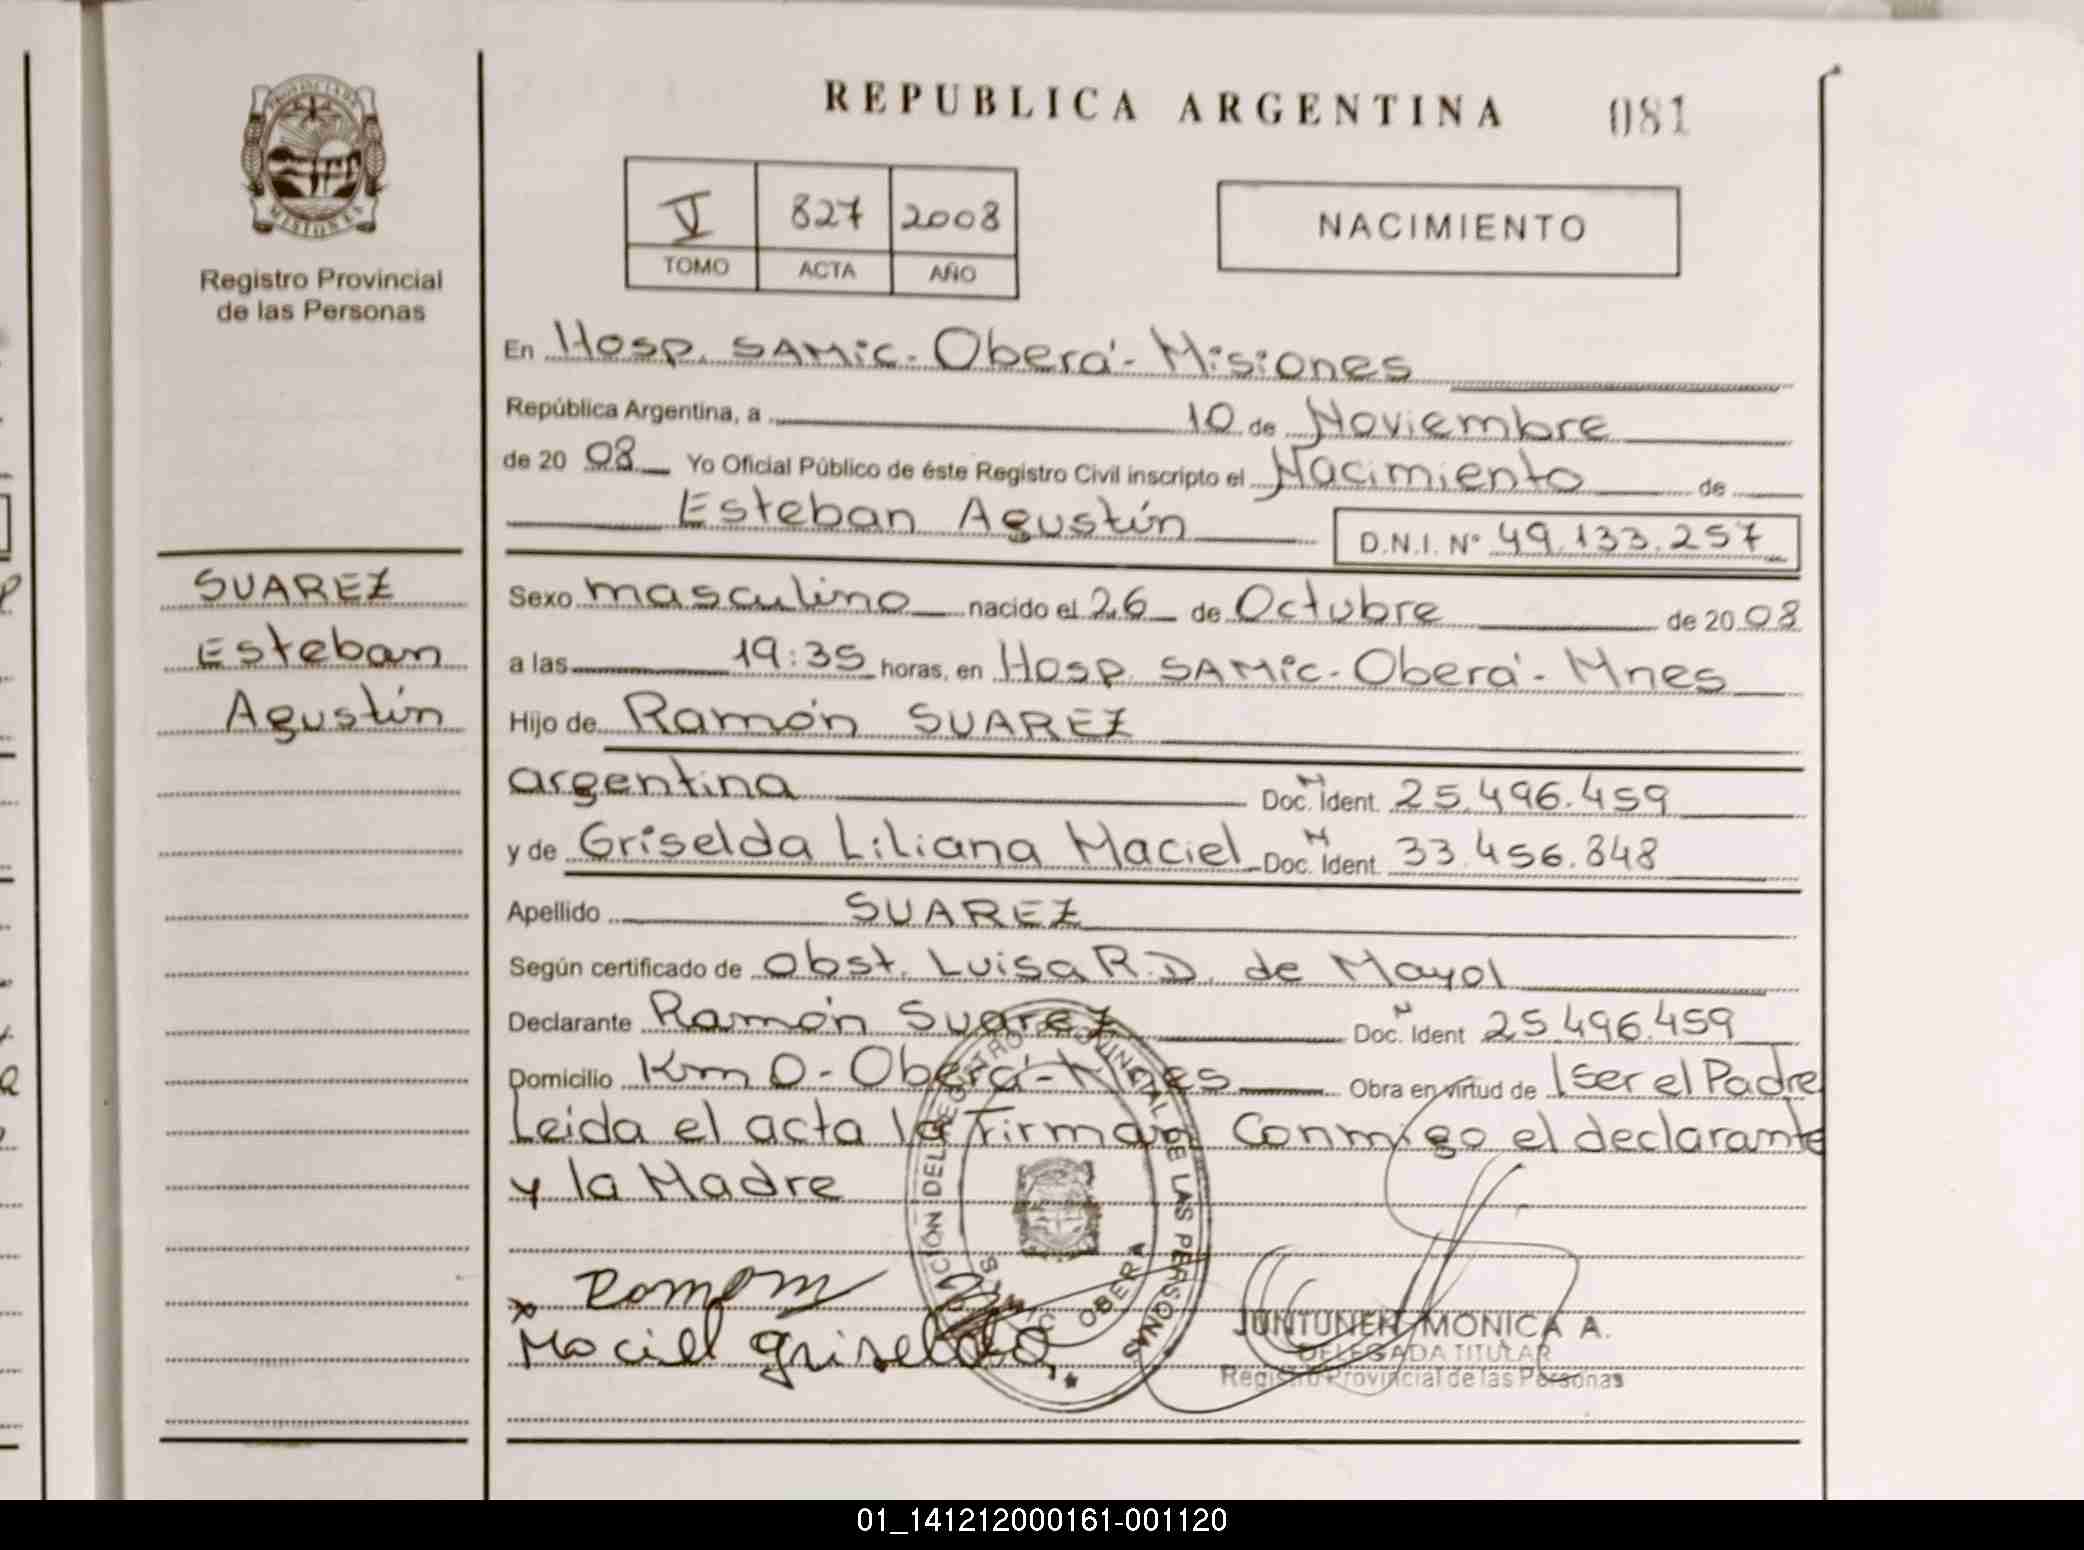 REPUBLICA ARGENTINA 081
PROVINCIA DE MISIONES
Registro Provincial
de las Personas
V 827 2008
TOMO ACTA AÑO
NACIMIENTO
En Hosp. SAMiC - Oberá - Misiones
República Argentina, a 10 de Noviembre
de 20 08 Yo Oficial Público de éste Registro Civil inscripto el Nacimiento de
Esteban Agustín D.N.I. Nº 49.133.257
SUAREZ
Esteban
Agustín
Sexo masculino nacido el 26 de Octubre de 20 08
a las 19:35 horas, en Hosp. SAMiC - Oberá - Mnes
Hijo de Ramón SUAREZ
argentina Doc. N Ident. 25.496.459
y de Griselda Liliana Maciel Doc. N Ident. 33.456.848
Apellido SUAREZ
Según certificado de Obst. Luisa R.D. de Mayol
Declarante Ramón Suarez Doc. N Ident 25.496.459
Domicilio Km 0 - Oberá - Mnes Obra en virtud de Ser el Padre
Leida el acta la Firman Conmigo el declarante
y la Madre
x Ramon
Maciel griselda
OBERA
JUNTUNEN MONICA A.
DELEGADA TITULAR
Registro Provincial de las Personas
01_141212000161-001120